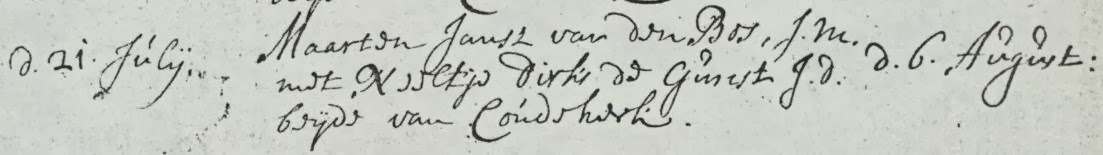 d. 21. Julij. Maarten Jansz van den Bos, J.m. d. 6. August:
met Neeltje Dirks de J.d.
beijde van Coudekerk.